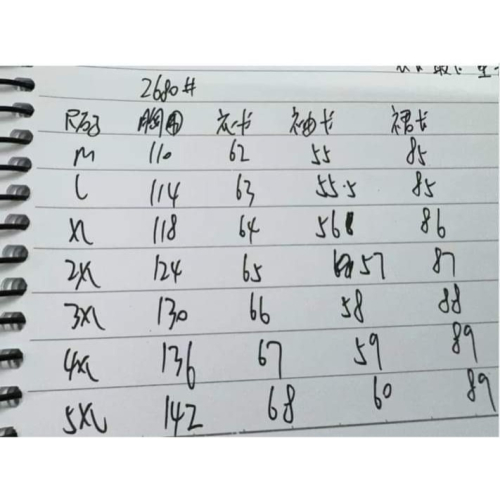 2680#
尺码 胸围 衣长 袖长 裙长
M 110 62 55 85
L 114 63 55.5 85
XL 118 64 56 86
2XL 124 65 57 87
3XL 130 66 58 88
4XL 136 67 59 89
5XL 142 68 60 89